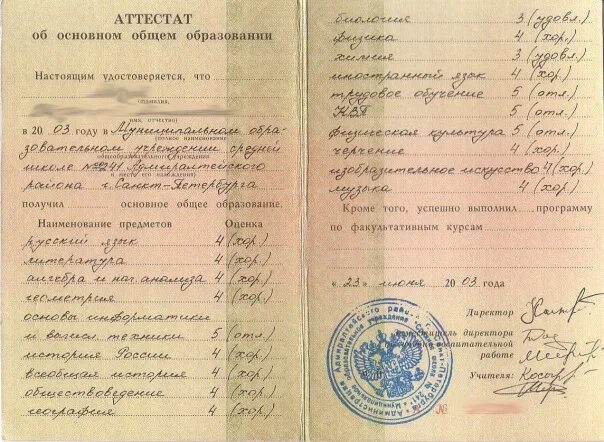 АТТЕСТАТ
об основном общем образовании
Настоящим удостоверяется, что
фамилия,
имя, отчество)
в 20 03 году в Муниципальном обра-
(полное наименование
зовательном учреждении средней
общеобразовательного учреждения
школе №241 Адмиралтейского
и место его нахождения)
района г. Санкт-Петербурга
получил основное общее образование.
Наименование предметов Оценка
русский язык 4 (хор.)
литература 4 (хор.)
алгебра и нач. анализа 4 (хор.)
геометрия 4 (хор.)
основы информатики
и вычисл. техники 5 (отл.)
история России 4 (хор.)
всеобщая история 4 (хор.)
обществоведение 4 (хор.)
география 4 (хор.)
биология 3 (удовл.)
физика 4 (хор.)
химия 3 (удовл.)
иностранный язык 4 (хор.)
трудовое обучение 5 (отл.)
НВП 5 (отл.)
физическая культура 5 (отл.)
черчение 4 (хор.)
изобразительное искусство 4 (хор.)
музыка 4 (хор.)
Кроме того, успешно выполнил программу
по факультативным курсам
« 23 » июня 20 03 года
Директор
заместитель директора
воспитательной
работе
Учителя:
№